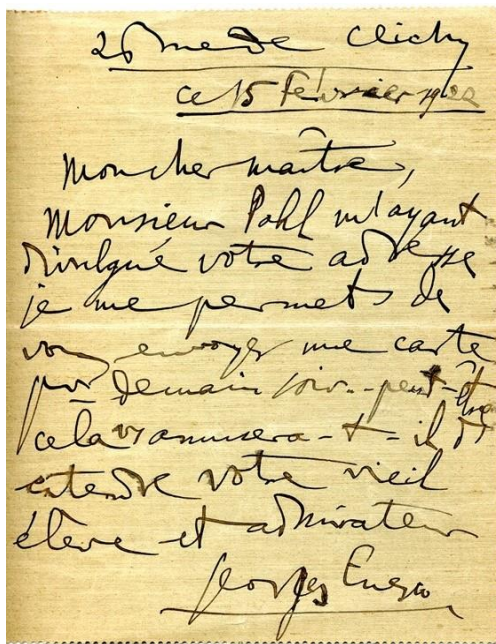 26 rue de Clichy
ce 15 Février 1922
Mon cher maître,
Monsieur Pohl m'ayant
divulgué votre adresse
je me permets de
vous envoyer une carte
pr demain soir - peut-être
cela vs amusera-t-il d'
entendre votre vieil
élève et admirateur
Georges Enesco